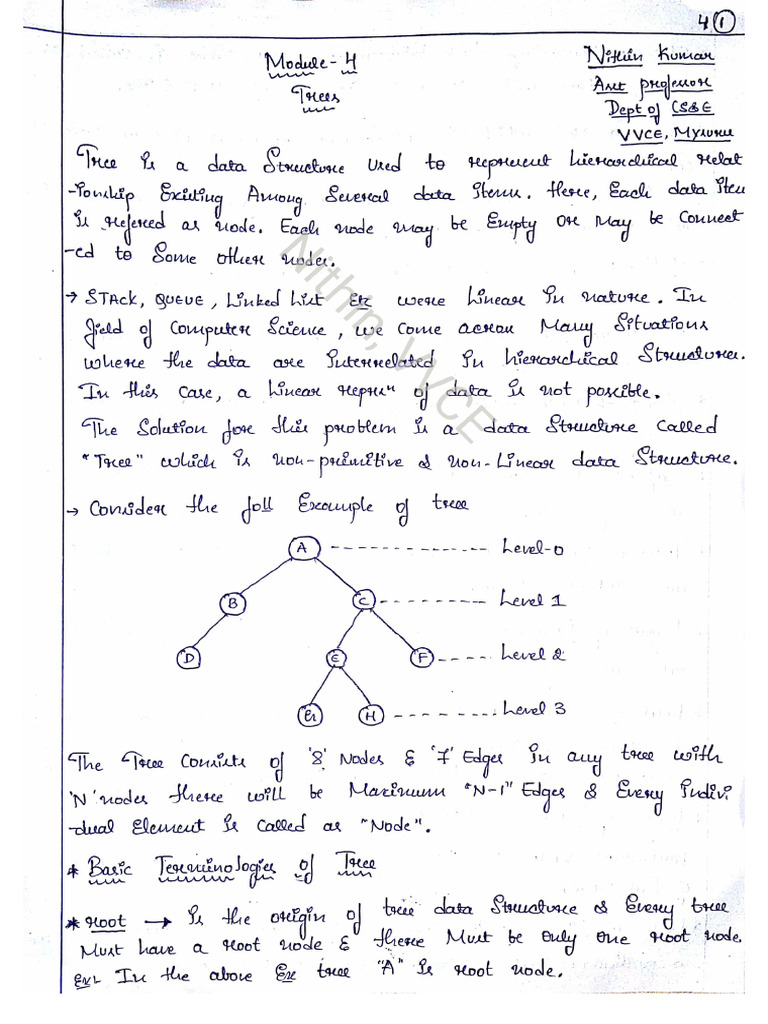 4 1
Module-4
Trees
Nithin Kumar
Asst professor
Dept of CS&E
VVCE, Mysuru
Tree is a data Structure used to represent hierarchical relat
-ionship Existing Among Several data items. Here, Each data item
is refered as node. Each node may be Empty or May be Connect
-ed to Some other nodes.
→ STAck, QUEUE, Linked List Etc were Linear in nature. In
field of Computer Science, we come across Many Situations
where the data are interrelated in hierarchical Structures.
In this Case, a Linear reprsn of data is not possible.
The Solution for this problem is a data Structure Called
"Tree" which is non-primitive & non-Linear data Structure.
→ Consider the foll Example of tree
A Level-0
B C Level 1
D E F Level 2
G H Level 3
The Tree Consists of '8' Nodes & '7' Edges in any tree with
'N' nodes there will be Maximum "N-1" Edges & Every indivi
-dual Element is Called as "Node".
* Basic Terminologies of Tree
* root → is the origin of tree data Structure & Every tree
Must have a root node & there Must be only one root node.
Ex: In the above Ex tree "A" is root node.
Nithin, VVCE